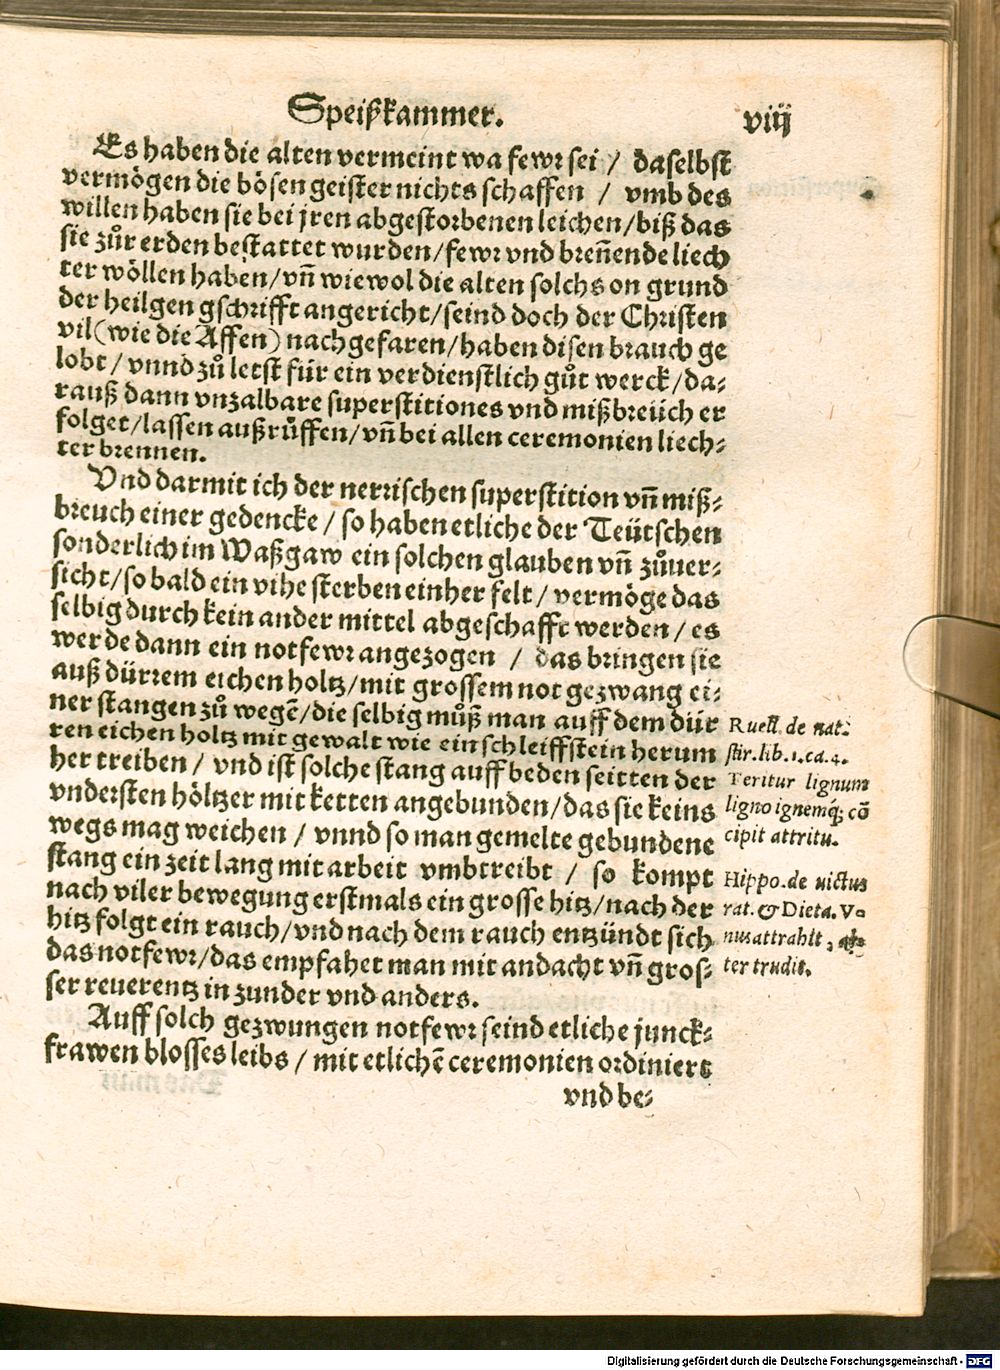 Speißkammer. viij
Es haben die alten vermeint wa fewr sei / daselbst
vermögen die bösen geister nichts schaffen / vmb des
willen haben sie bei jren abgestorbenen leichen/biß das
sie zůr erden bestattet wurden/fewr vnd breñende liech
ter wöllen haben/vñ wiewol die alten solchs on grund
der heilgen gschrifft angericht/seind doch der Christen
vil(wie die Affen) nachgefaren/haben disen brauch ge
lobt / vnnd zů letst für ein verdienstlich gůt werck/da⸗
rauß dann vnzalbare superstitiones vnd mißbreüch er
folget/lassen außrůffen/vñ bei allen ceremonien liech⸗
ter brennen.
Vnd darmit ich der nerrischen superstition vñ miß⸗
breuch einer gedencke / so haben etliche der Teütschen
sonderlich im Waßgaw ein solchen glauben vñ zůuer⸗
sicht/so bald ein vihe sterben einher felt / vermöge das
selbig durch kein ander mittel abgeschafft werden / es
werde dann ein notfewr angezogen / das bringen sie
auß dürrem eichen holtz/mit grossem not gezwang ei⸗
ner stangen zů wegẽ/die selbig můß man auff dem dür
ren eichen holtz mit gewalt wie ein schleiffstein herum
her treiben / vnd ist solche stang auff beden seitten der
vndersten höltzer mit ketten angebunden/das sie keins
wegs mag weichen / vnnd so man gemelte gebundene
stang ein zeit lang mit arbeit vmbtreibt / so kompt
nach viler bewegung erstmals ein grosse hitz/nach der
hitz folgt ein rauch/vnd nach dem rauch entzündt sich
das notfewr/das empfahet man mit andacht vñ gros⸗
ser reuerentz in zunder vnd anders.
Auff solch gezwungen notfewr seind etliche junck⸗
frawen blosses leibs / mit etlichẽ ceremonien ordiniert
vnd be⸗
Ruell. de nat.
stir. lib. 1. ca. 4.
Teritur lignum
ligno ignemq́; cõ
cipit attritu.
Hippo. de uictus
rat. & Dieta. V⸗
nus attrahit, al⸗
ter trudit.
Digitalisierung gefördert durch die Deutsche Forschungsgemeinschaft - DFG